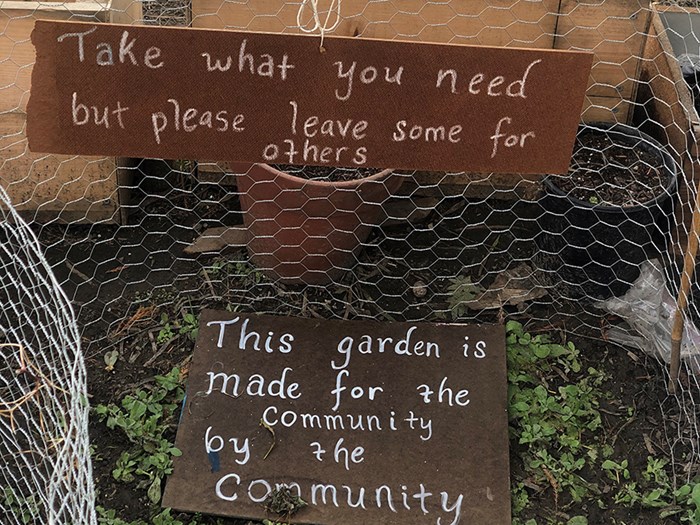 Take what you need
but please leave some for
others
This garden is
made for the
community
by the
community